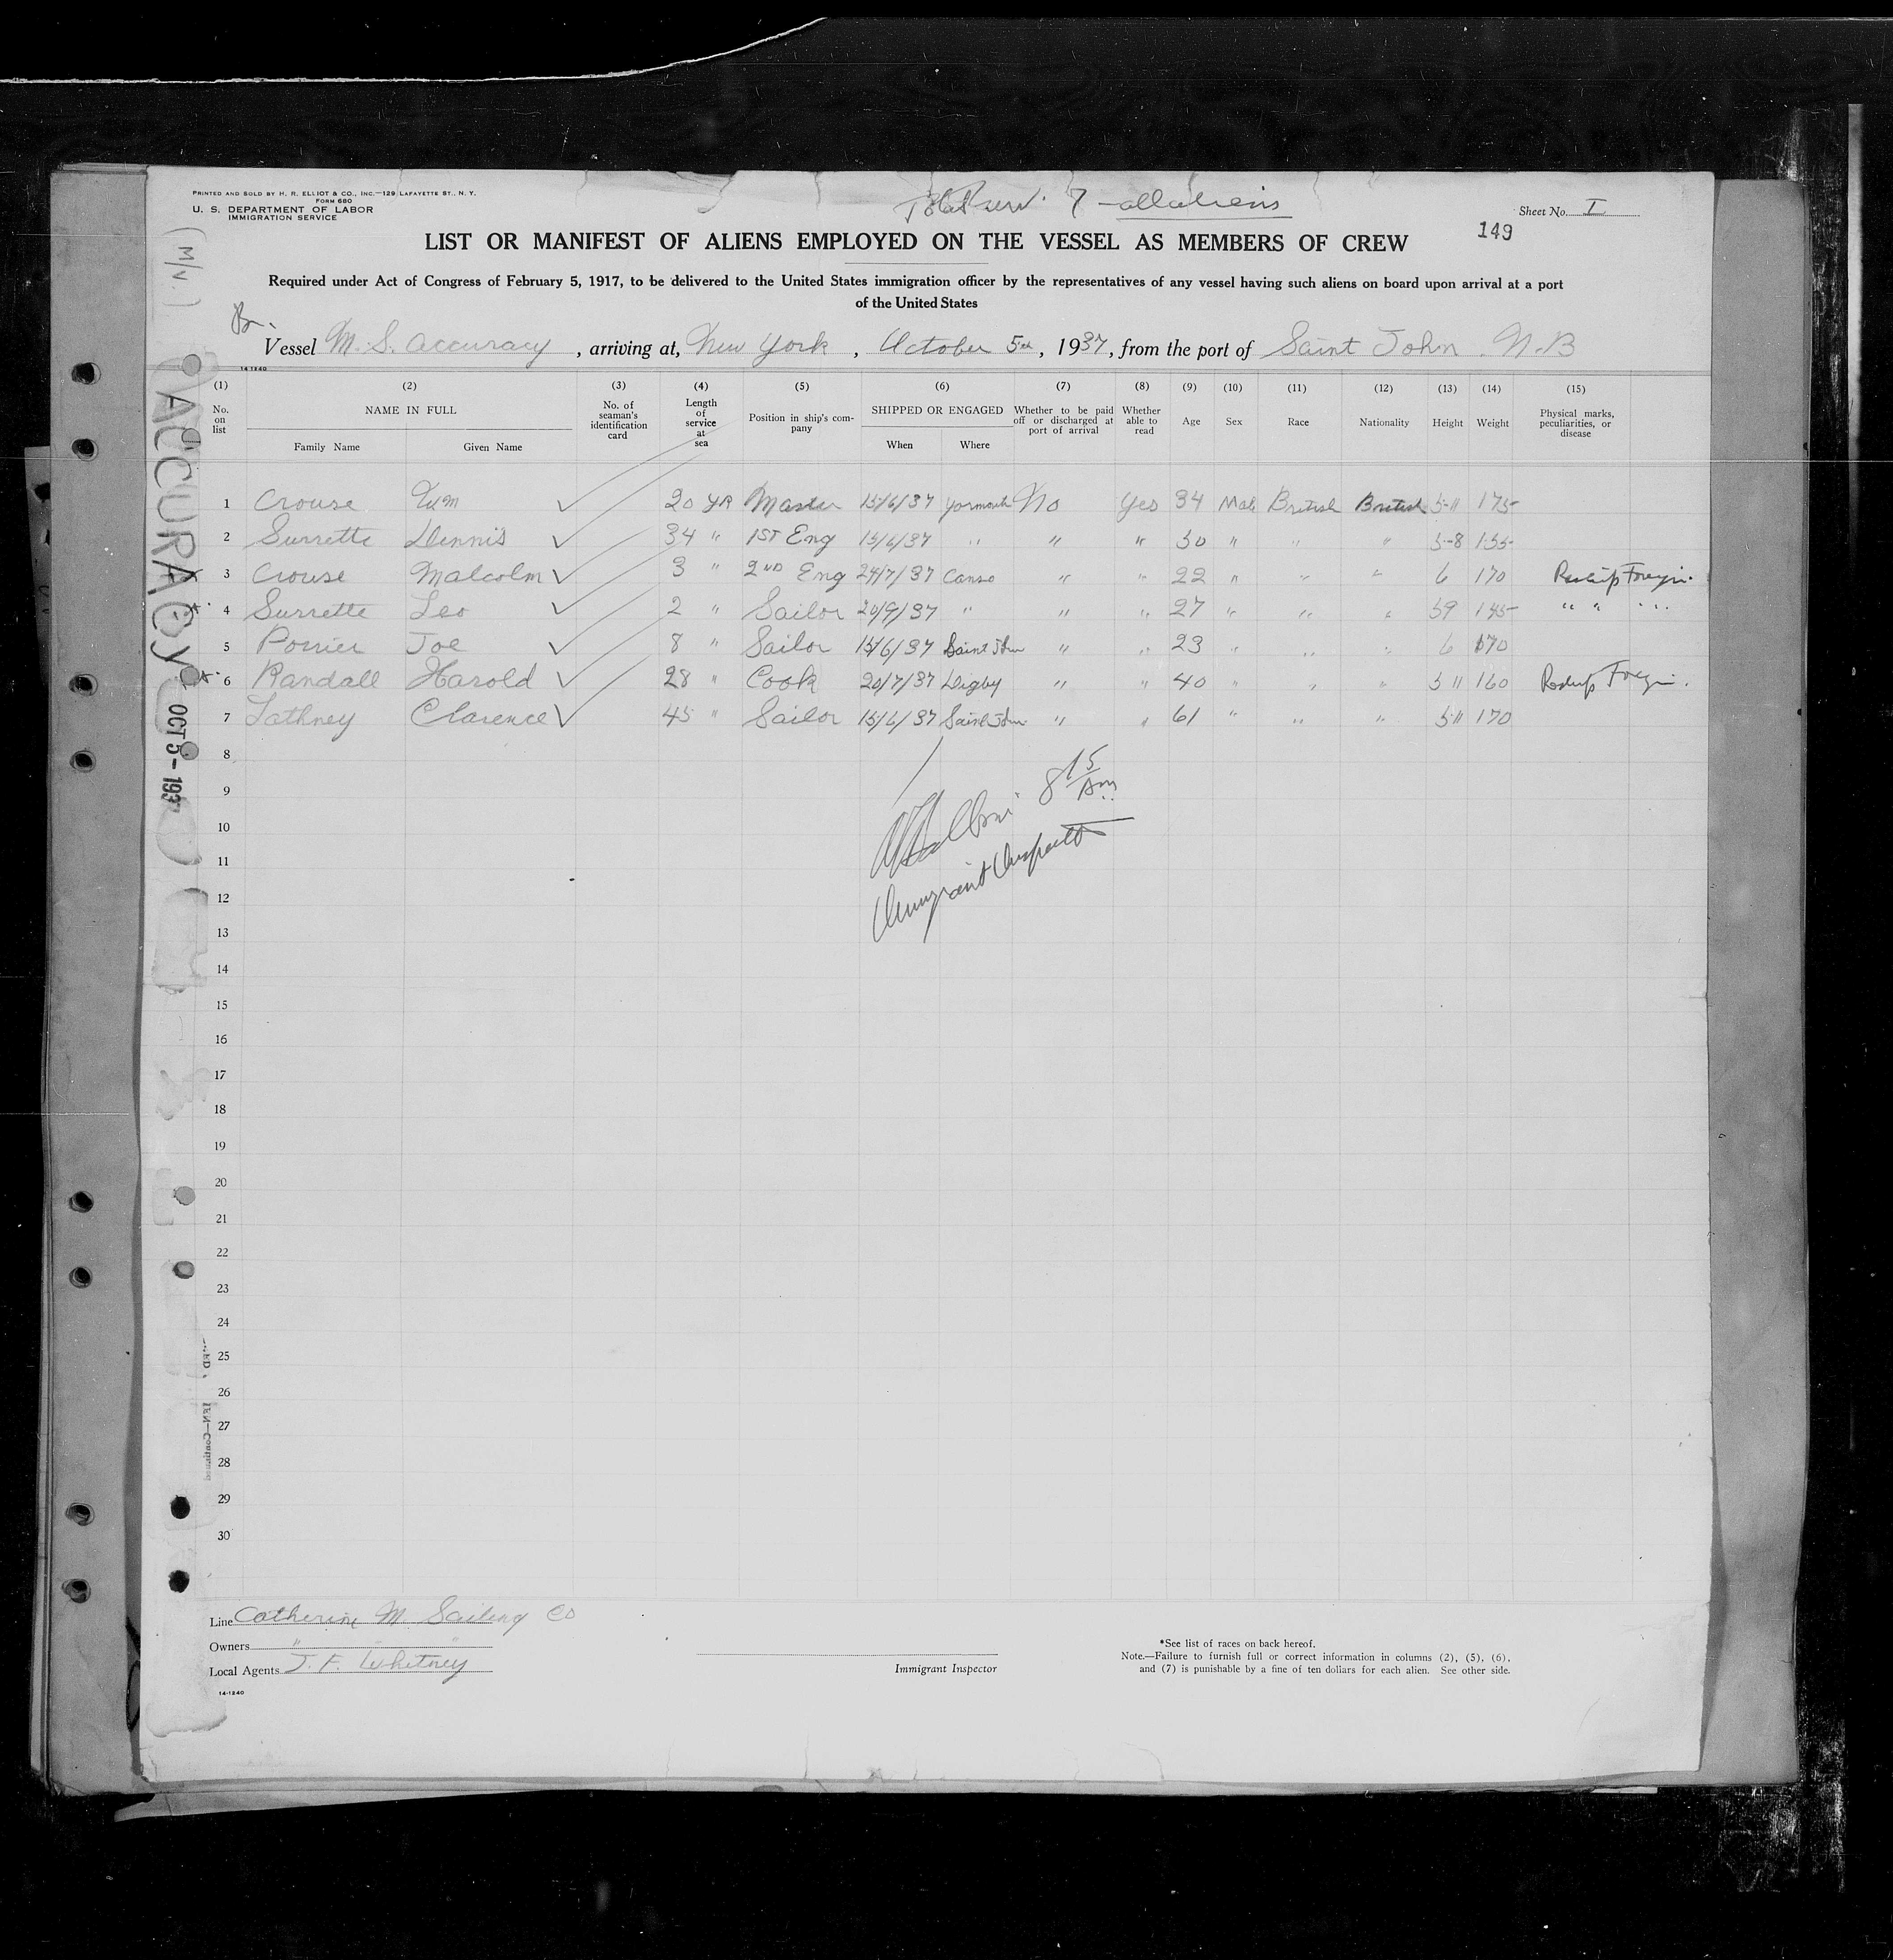 PRINTED AND SOLD BY H. R. ELLIOT & CO., INC.—129 LAFAYETTE ST., N. Y.
FORM 680
U. S. DEPARTMENT OF LABOR
IMMIGRATION SERVICE
7 - all aliens
Sheet No. I
149
LIST OR MANIFEST OF ALIENS EMPLOYED ON THE VESSEL AS MEMBERS OF CREW
Required under Act of Congress of February 5, 1917, to be delivered to the United States immigration officer by the representatives of any vessel having such aliens on board upon arrival at a port
of the United States
(M/V.)
ACCURACY
OCT 5 - 193
Br.
Vessel M. S. Accuracy, arriving at, New York, October 5th, 1937, from the port of Saint John N.B
14-1240
(1) (2) (3) (4) (5) (6) (7) (8) (9) (10) (11) (12) (13) (14) (15)
No. on list NAME IN FULL No. of seaman's identification card Length of service at sea Position in ship's company SHIPPED OR ENGAGED Whether to be paid off or discharged at port of arrival Whether able to read Age Sex Race Nationality Height Weight Physical marks, peculiarities, or disease
Family Name Given Name When Where
1 Crouse Wm 20 YR Master 15/6/37 Yarmouth No Yes 34 Male British British 5-11 175
2 Surrette Dennis 34 " 1ST Eng 15/6/37 " " " 50 " " " 5-8 155
3 Crouse Malcolm 3 " 2ND Eng 24/7/37 Canso " " 22 " " " 6 170 Foreign.
4 Surrette Leo 2 " Sailor 20/9/37 " " " 27 " " " 59 145 " " "
5 Porrier Joe 8 " Sailor 15/6/37 Saint John " " 23 " " " 6 170
6 Randall Harold 28 " Cook 20/7/37 Digby " " 40 " " " 5 11 160 Foreign.
7 Lathney Clarence 45 " Sailor 15/6/37 Saint John " " 61 " " " 5 11 170
8
9
10
11
12
13
14
15
16
17
18
19
20
21
22
23
24
25
26
27
28
29
30
8 15 Am
Immigrant Inspector
Line Catherine M. Sailing Co
Owners " "
Local Agents J. F. Whitney
14-1240
Immigrant Inspector
*See list of races on back hereof.
Note.—Failure to furnish full or correct information in columns (2), (5), (6),
and (7) is punishable by a fine of ten dollars for each alien. See other side.